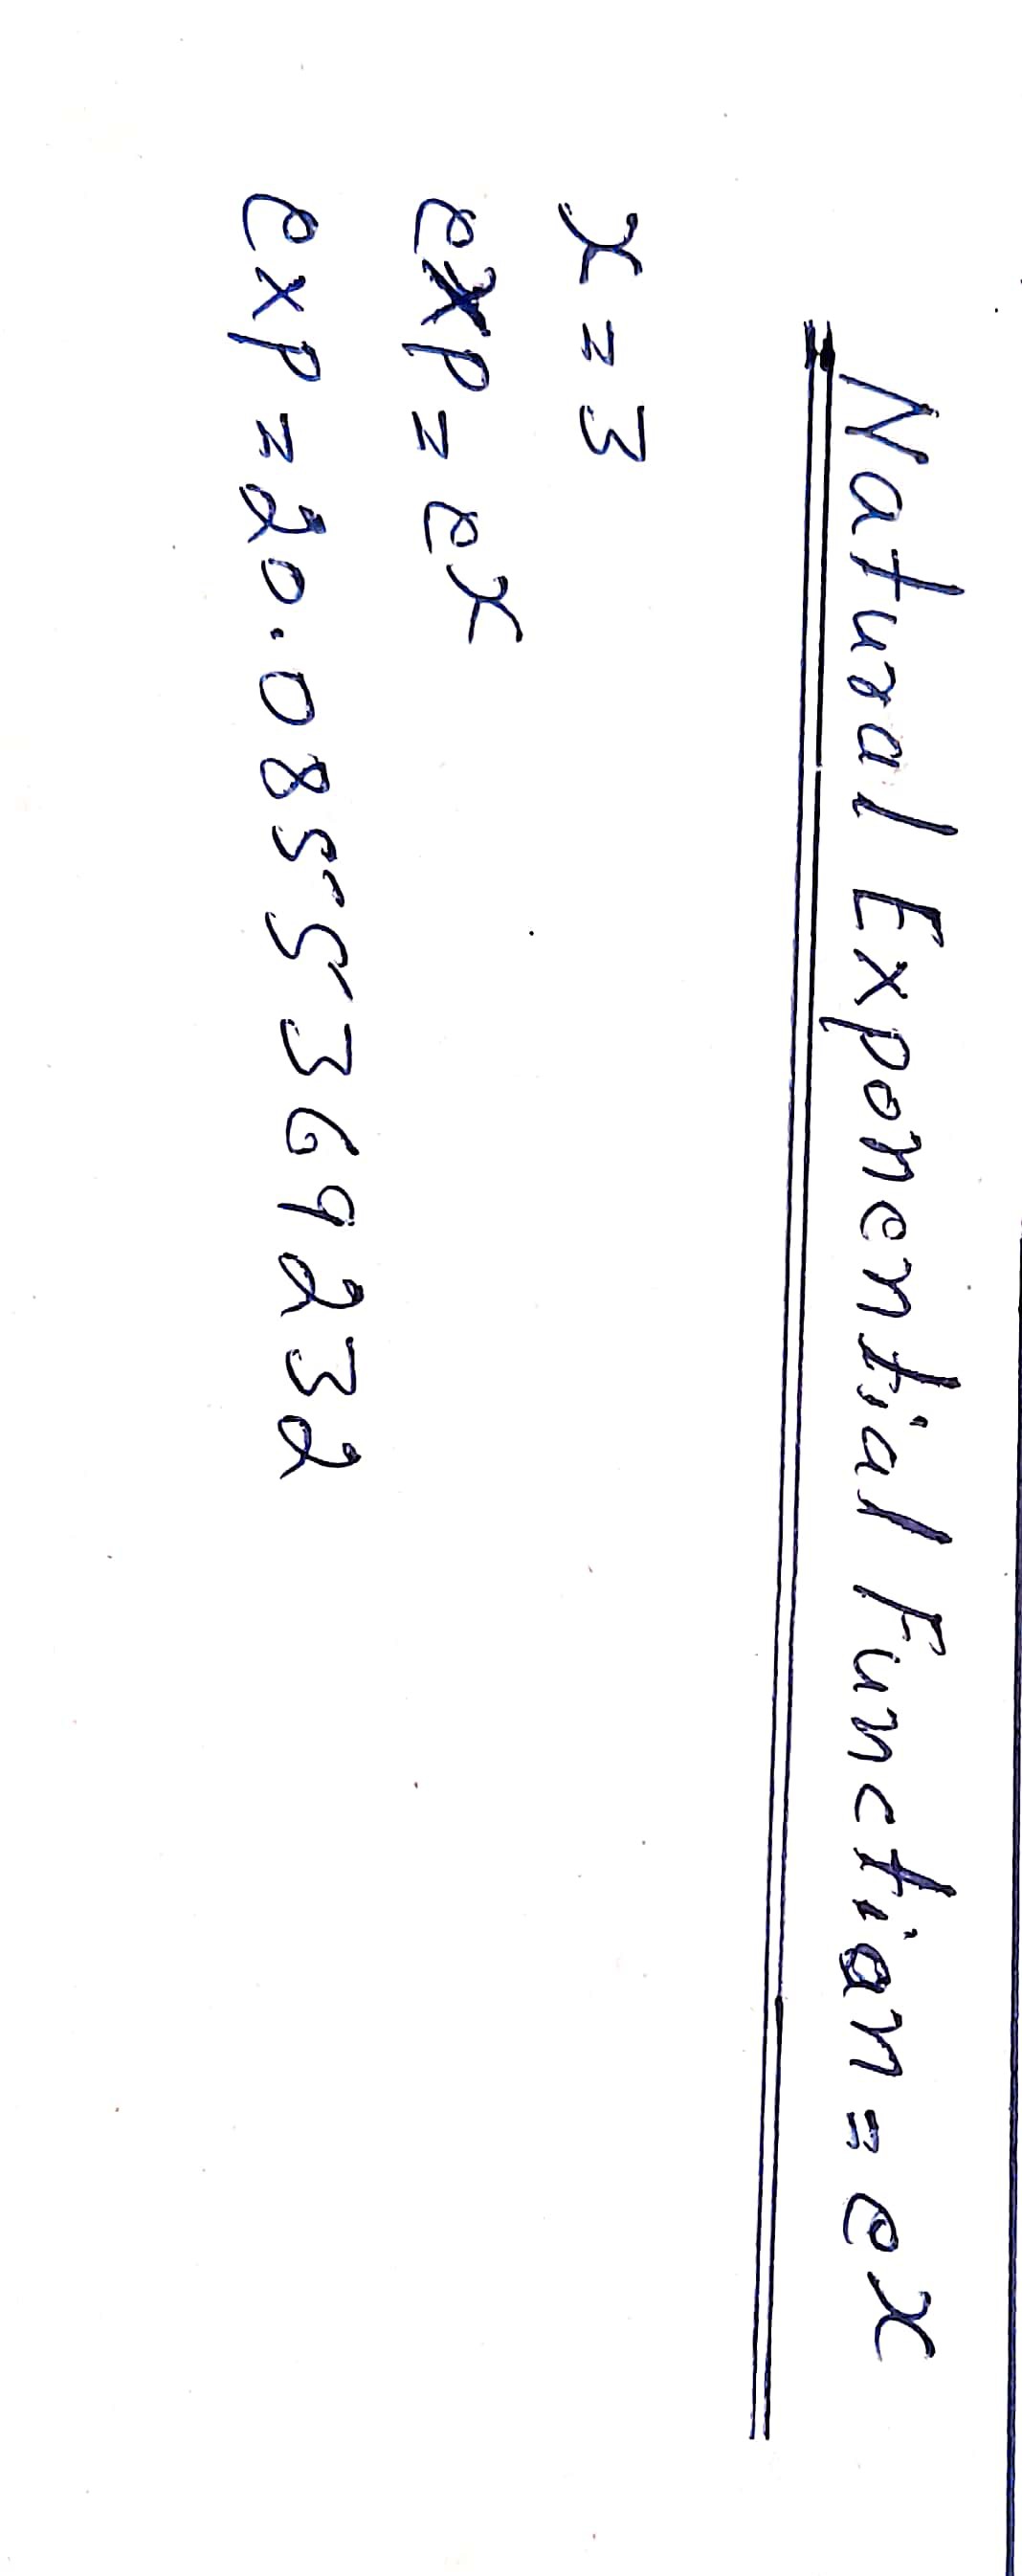 Natural Exponential Function = e^x
x = 3
exp = e^x
exp = 20.0855369232